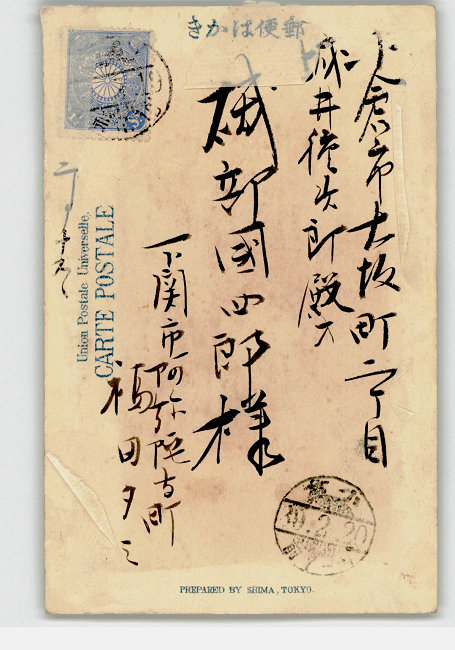 きかは便郵
小倉市大坂町二丁目
井徳次郎殿方
磯部國四郎様
下関市阿弥陀寺町
福田夕ミ
Union Postale Universelle.
CARTE POSTALE
39.2.20
PREPARED BY SHIMA, TOKYO.